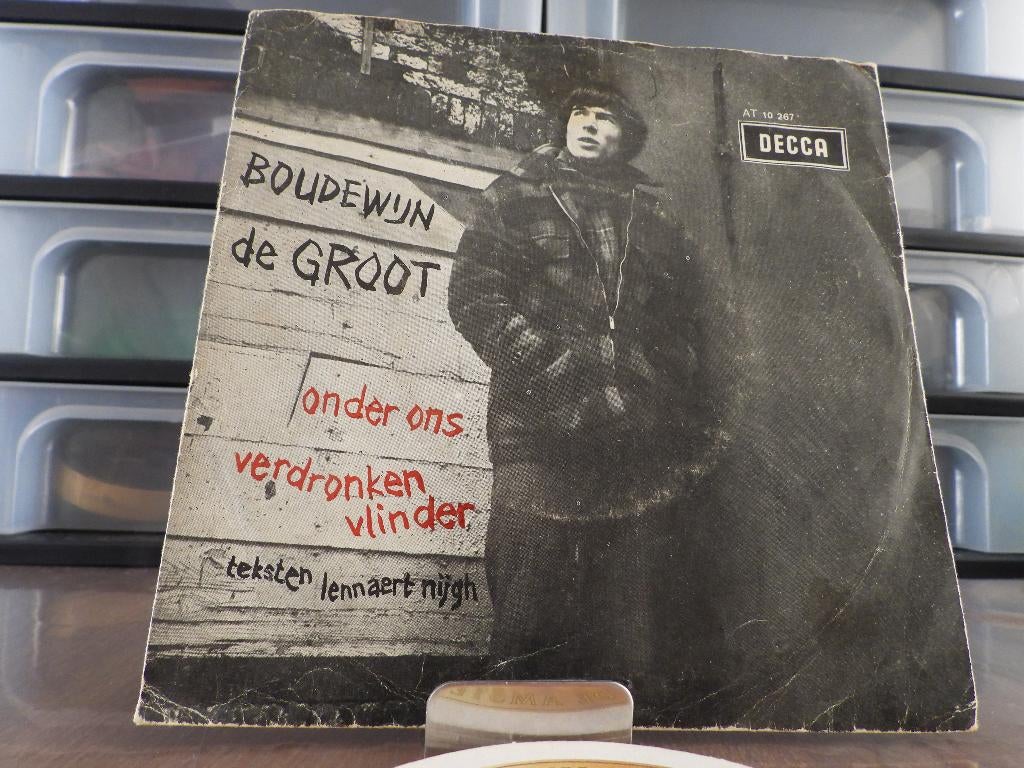 BOUDEWIJN
de GROOT
AT 10 267
DECCA
onder ons
verdronken
vlinder
teksten lennaert nijgh